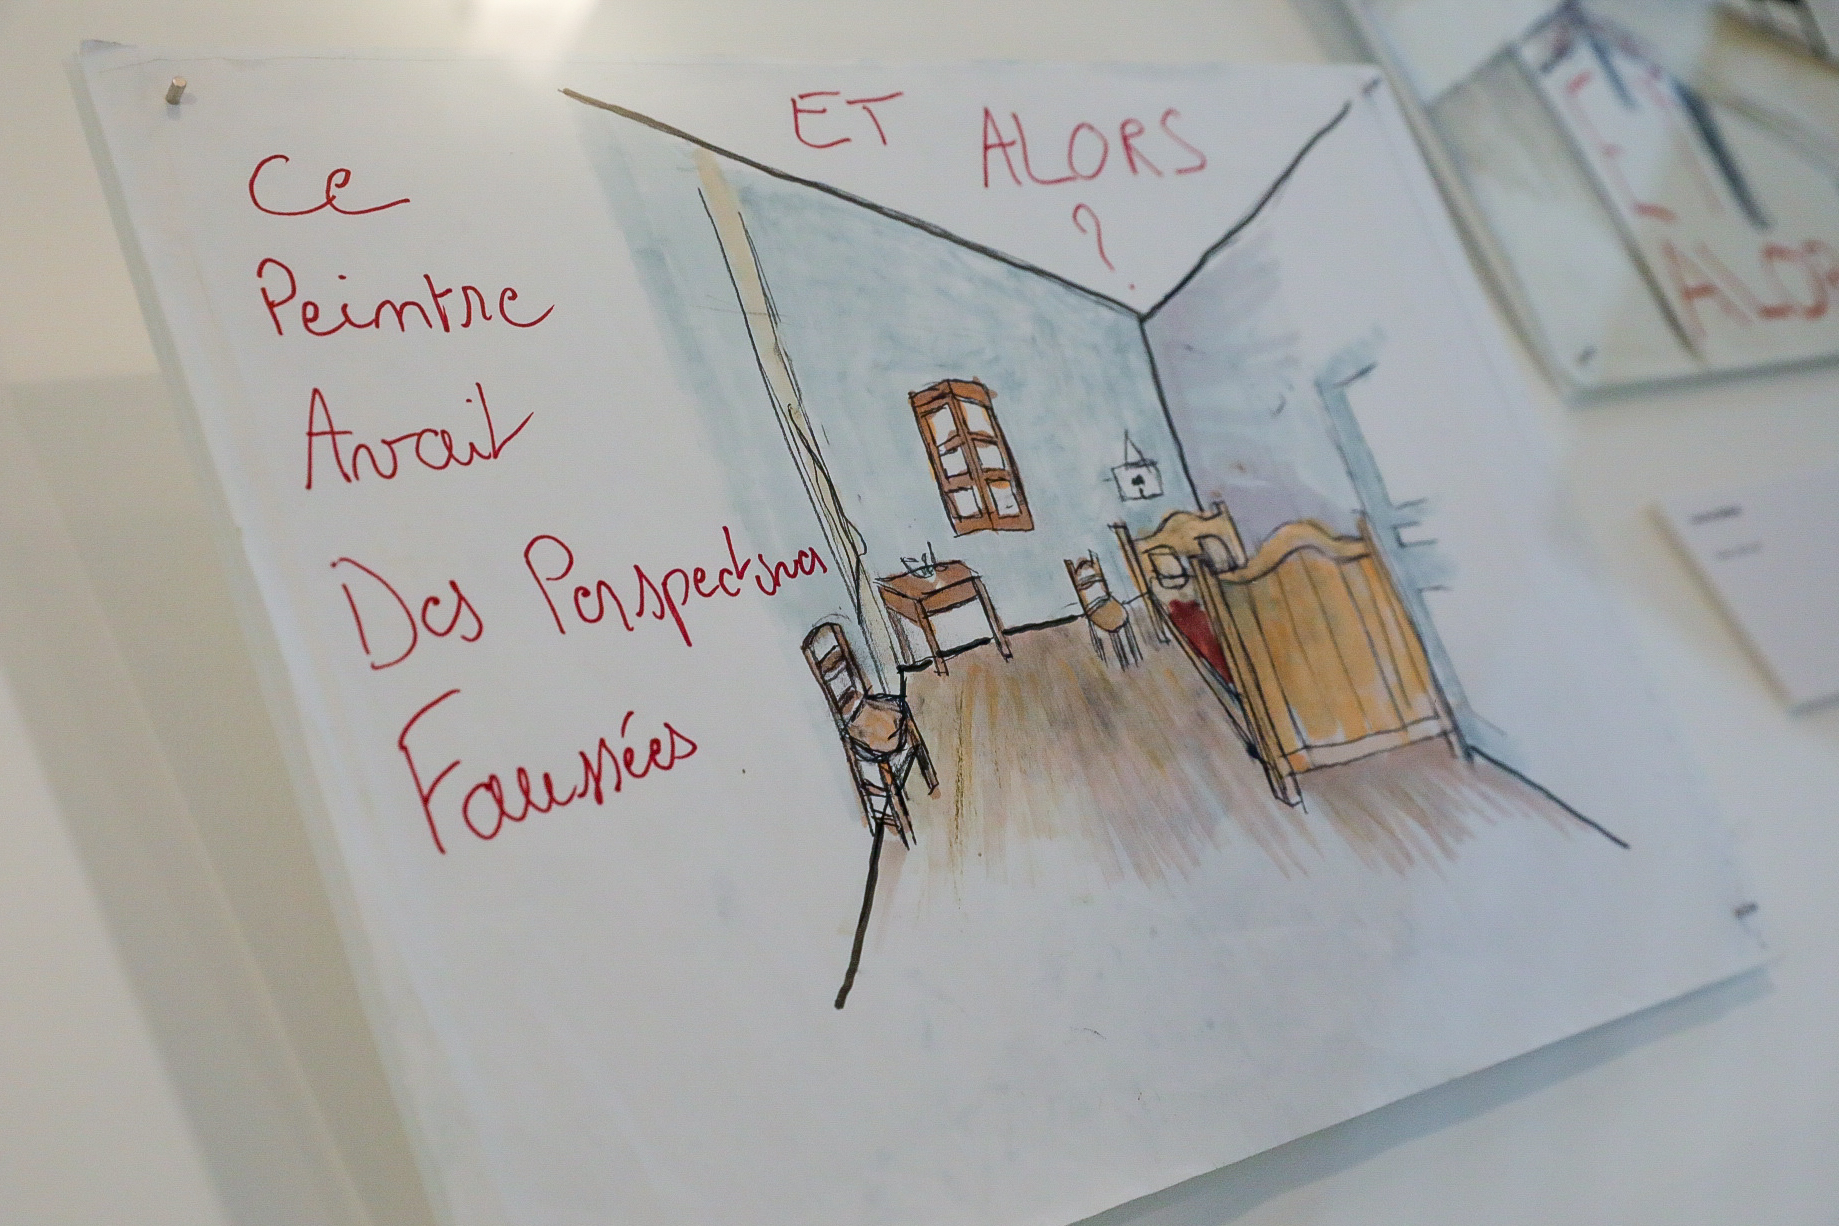 Ce
Peintre
Avait
Des Perspectives
Faussées
ET ALORS
?
ALORS